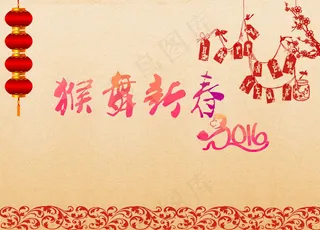 猴舞新春
2016